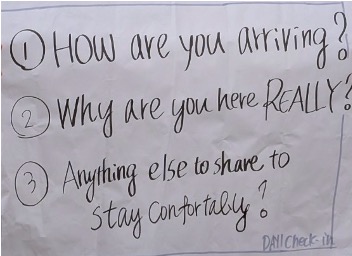 ① HOW are you arriving?
② Why are you here REALLY?
③ Anything else to share to
stay confortably?
DAY1 Check-in